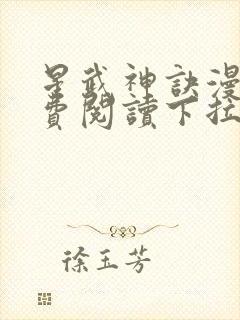 星武神訣漫
費閱讀下拉
徐玉芳